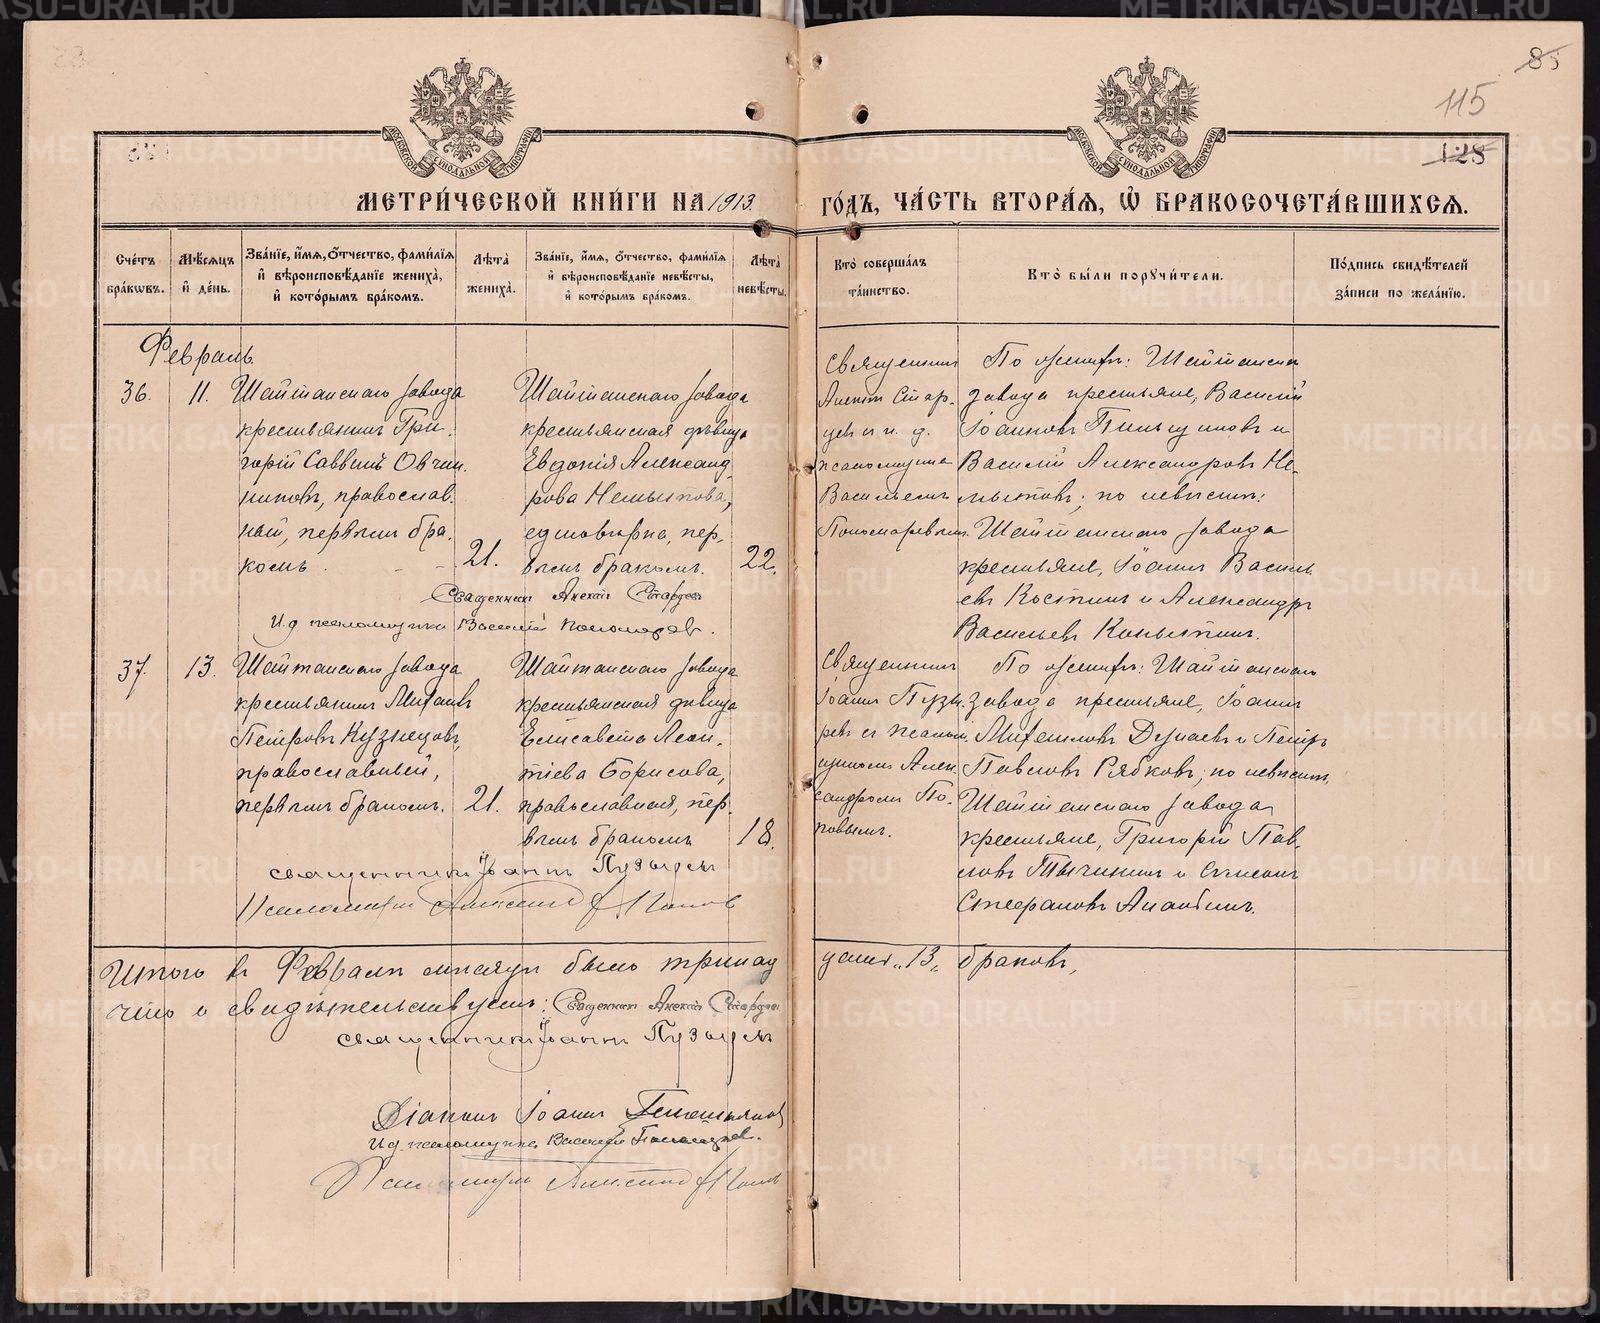 85
115
128
МОСКОВСКОЙ СѴНОДАЛЬНОЙ ТИПОГРАФІИ
МОСКОВСКОЙ СѴНОДАЛЬНОЙ ТИПОГРАФІИ
МЕТРИ́ЧЕСКОЙ КНИ́ГИ НА 1913.
ГО́ДЪ, ЧА́СТЬ ВТОРА́Ѧ, Ѽ БРАКОСОЧЕТА́ВШИХСѦ.
Сче́тъ бра́кωвъ.
Мѣ́сѧцъ и҆ де́нь.
Зва́нїе, и҆́мѧ, ѻ҆́тчество, фами́лїѧ и҆ вѣроисповѣ́данїе жениха̀, и҆ кото́рымъ бра́комъ.
Лѣта̀ жениха̀.
Зва́нїе, и҆́мѧ, ѻ҆́тчество, фами́лїѧ и҆ вѣроисповѣ́данїе невѣ́сты, и҆ кото́рымъ бра́комъ.
Лѣта̀ невѣ́сты.
Кто̀ соверша́лъ та́инство.
Кто̀ бы́ли порꙋчи́тели.
По́дпись свидѣ́телей за́писи по жела́нїю.
Февраль.
36.
11.
Шайтанскаго завода
крестьянинъ Гри-
горій Саввинъ Овчин-
никовъ, православ-
ный, первымъ бра-
комъ.
21.
Шайтанскаго завода
крестьянская дѣвица
Евдокія Александ-
рова Немытова,
единовѣрка, пер-
вымъ бракомъ.
22.
Священникъ
Алексій Стар-
цевъ и. д.
псаломщика
Василіемъ
Пономаревымъ.
По женихѣ: Шайтанскаго
завода крестьяне, Василій
Іоанновъ Пильщиковъ и
Василій Александровъ Не-
мытовъ; по невѣстѣ:
Шайтанскаго завода
крестьяне, Іоаннъ Василь-
евъ Костинъ и Александръ
Васильевъ Копытинъ.
Священникъ Алексій Старцевъ
И.д. псаломщика Василій Пономаревъ.
37.
13.
Шайтанскаго завода
крестьянинъ Михаилъ
Петровъ Кузнецовъ,
православный,
первымъ бракомъ.
21.
Шайтанскаго завода
крестьянская дѣвица
Елисавета Леон-
тіева Борисова,
православная, пер-
вымъ бракомъ
18.
Священникъ
Іоаннъ Пузы-
ревъ съ псалом-
щикомъ Алек-
сандромъ По-
повымъ.
По женихѣ: Шайтанскаго
завода крестьяне, Іоаннъ
Михаиловъ Дунаевъ и Петръ
Павловъ Рябковъ; по невѣстѣ,
Шайтанскаго завода
крестьяне, Григорій Пав-
ловъ Тычкинъ и Симеонъ
Стефановъ
священникъ Іоаннъ Пузыревъ
Псаломщикъ Александръ Поповъ
Итого въ Февралѣ мѣсяцѣ было тринад
цать „13„ браковъ,
что и свидѣтельствуемъ: Священникъ Алексій Старцевъ
священникъ Іоаннъ Пузыревъ
Діаконъ Іоаннъ
И.д. псаломщика Василій Пономаревъ.
Псаломщикъ Александръ Поповъ
METRIKI.GASO-URAL.RU